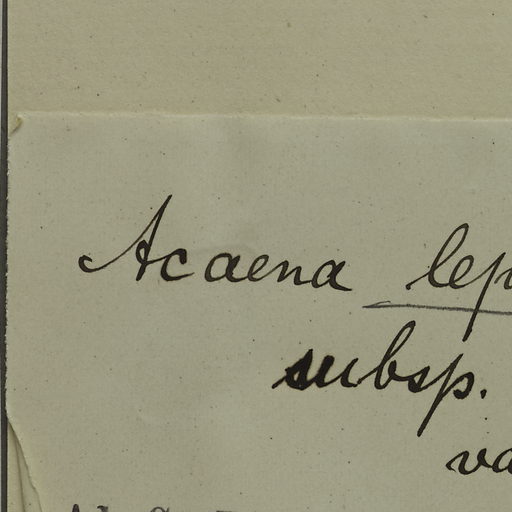 Acaena lep
subsp.
va